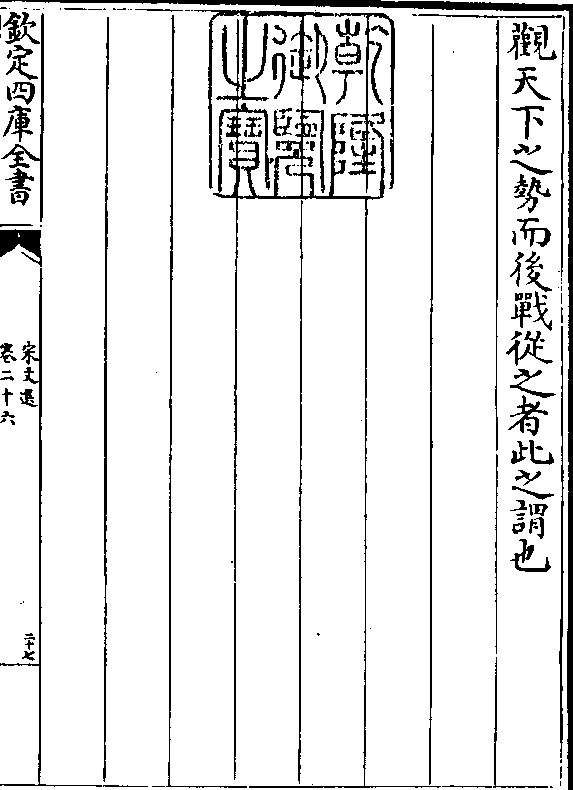 觀天下之勢而後戰從之者此之謂也
乾隆
御覽
之寶
欽定四庫全書
宋文選
卷二十六
二十七